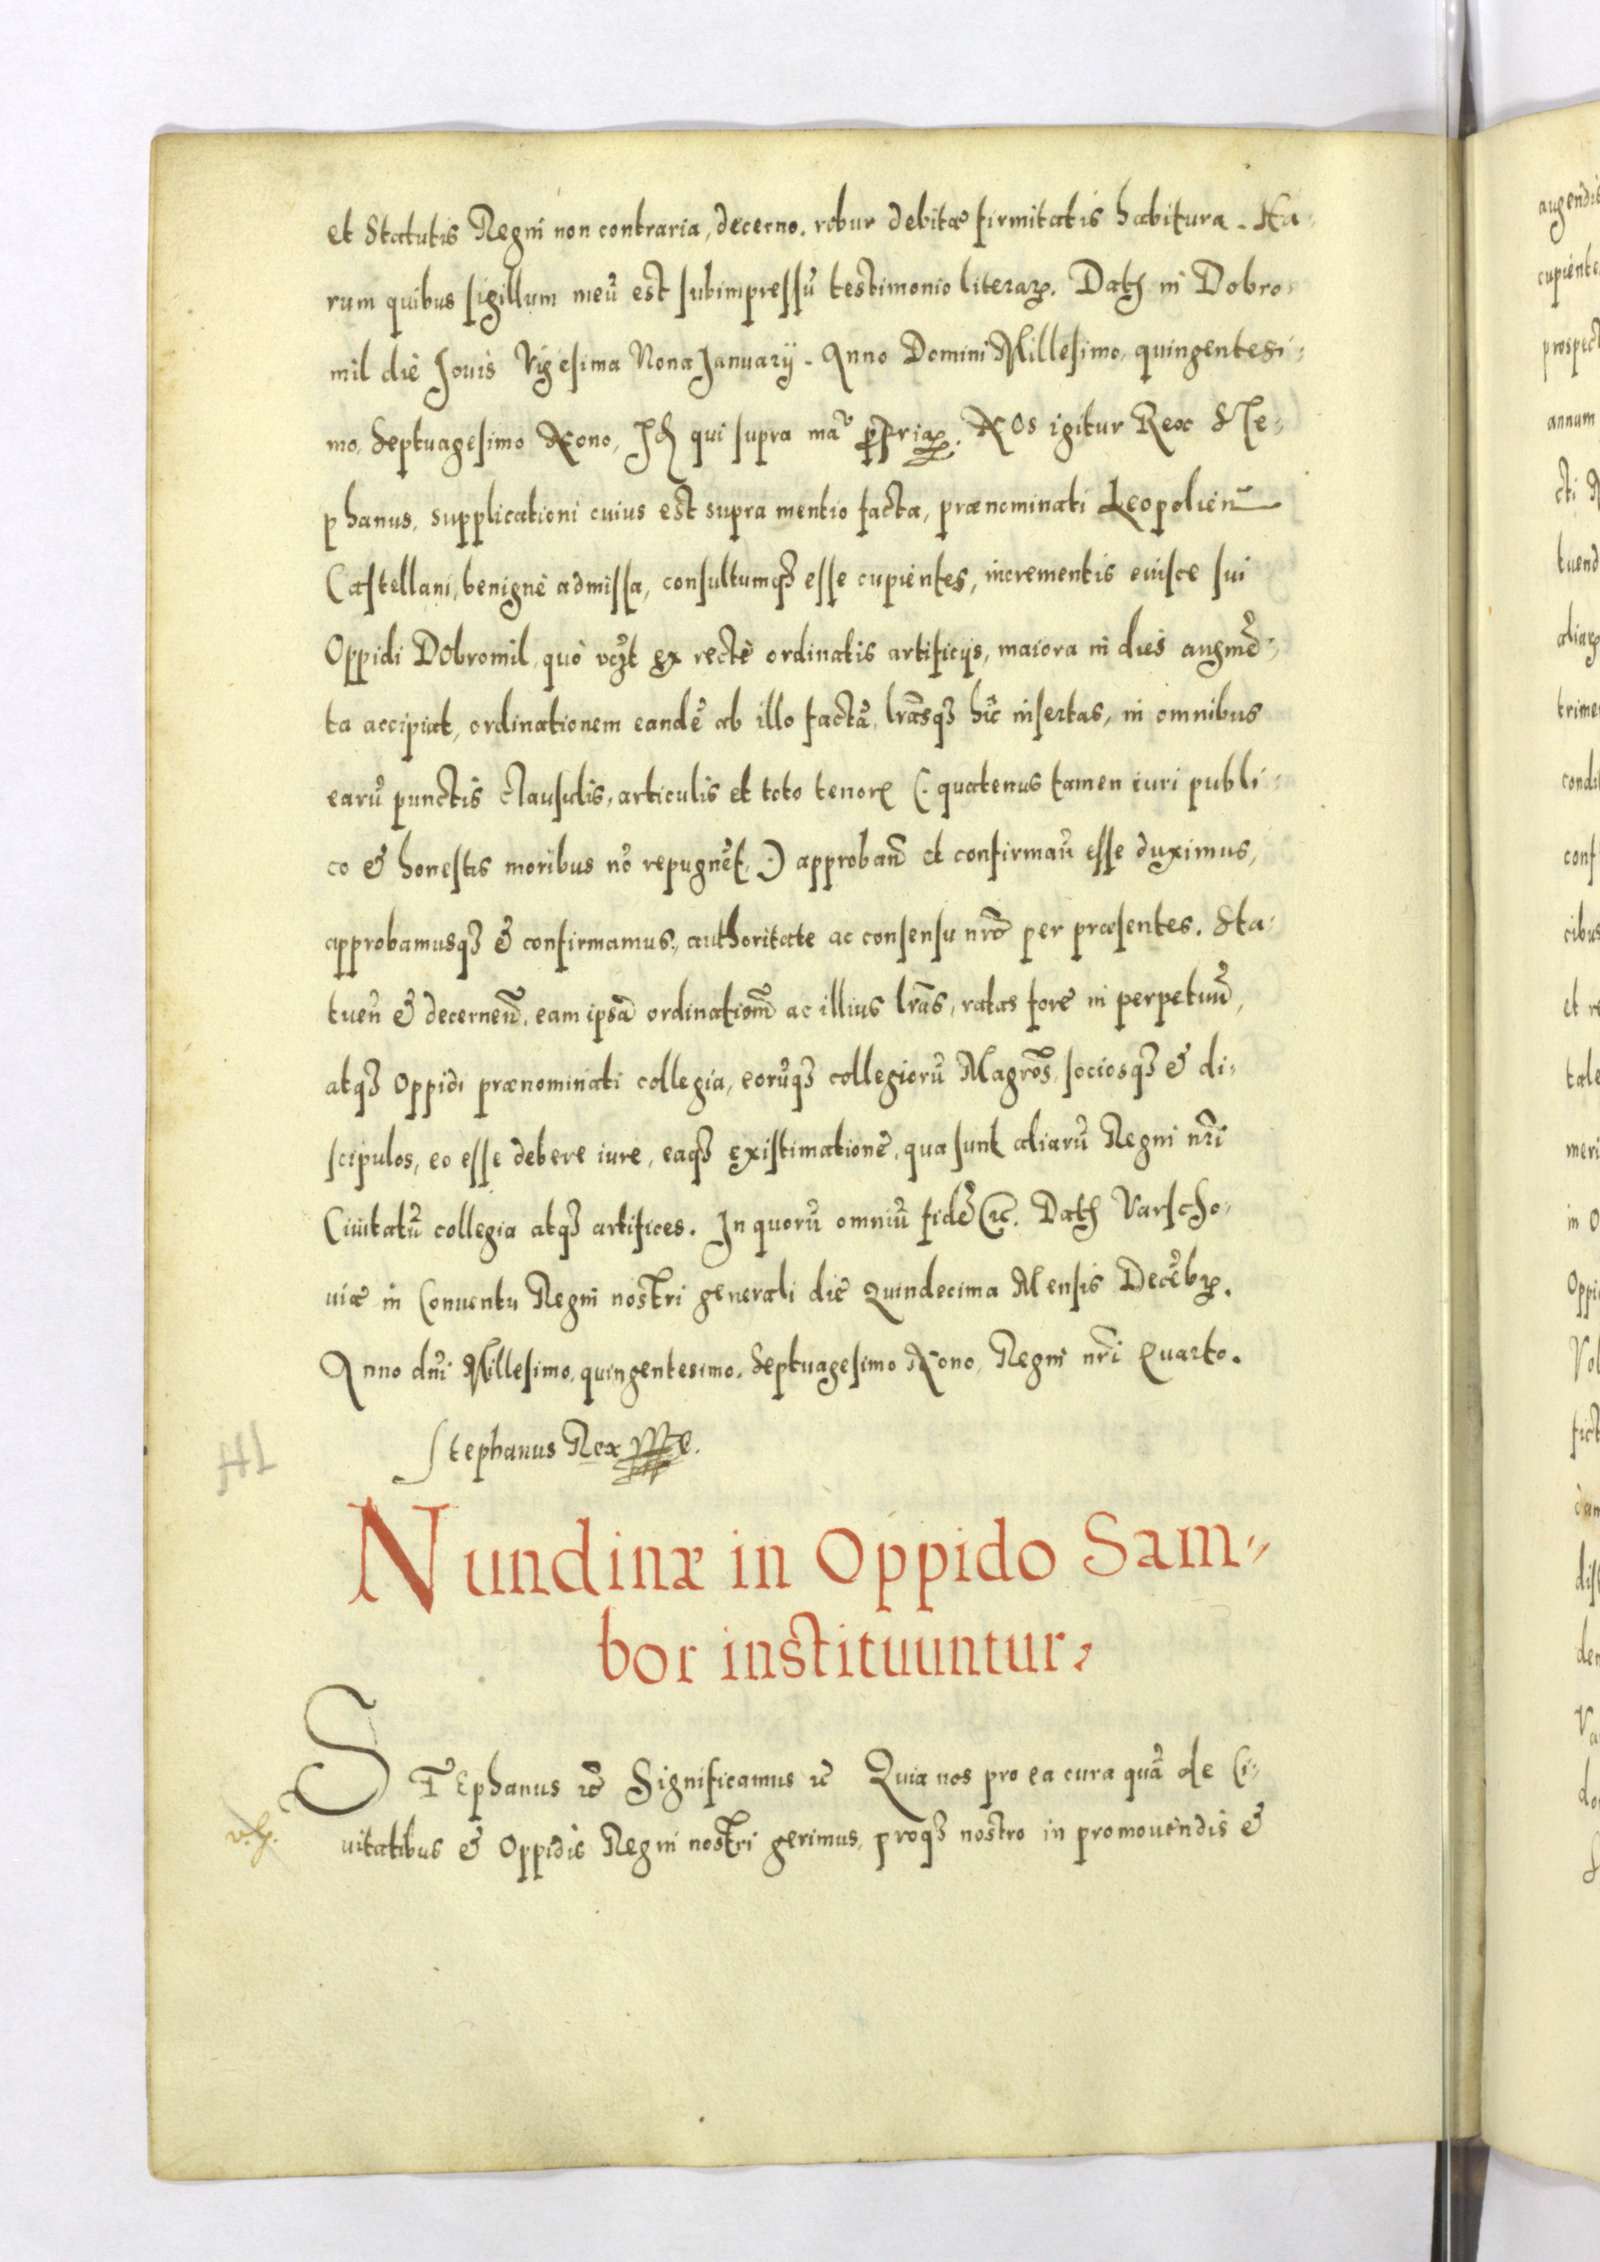 et Statutis Regni non contraria, decerno. robur debitæ firmitatis habitura. Ha-
rum quibus sigillum meũ est subimpressũ testimonio literarꝝ. Datꝭ in Dobro-
mil die Jouis Vigesima Nona January. Anno Domini Millesimo, quingentesi-
mo, Septuagesimo Nono, qui supra NOs igitur Rex Ste-
phanus, supplicationi cuius est supra mentio facta, prænominati Leopolieñ
Castellani, benignè admissa, consultumqꝫ esse cupientes, incrementis eiusce sui
Oppidi DObromil, quò ex rectè ordinatis artificijs, maiora in dies augmẽ-
ta accipiat, ordinationem eandẽ ab illo factã, lrãsqꝫ hĩc insertas, in omnibus
earũ punctis clausulis, articulis et toto tenore (: quatenus tamen iuri publi-
co & honestis moribus nõ repugnẽt :) approbañ et confirmañ esse duximus,
approbamusqꝫ & confirmamus, authoritate ac consensu nrõ per præsentes. Sta-
tueñ & decerneñ, eam ipsã ordinationẽ ac illius lrãs, ratas fore in perpetuũ,
atqꝫ Oppidi prænominati collegia, eorũqꝫ collegiorũ Magrõs, sociosqꝫ & di-
scipulos, eo esse debere iure, eaqꝫ existimatione, qua sunt aliarũ Regni nrĩ
Ciuitatũ collegia atqꝫ artifices. In quorũ omniũ fidẽ &c. Datꝭ Varscho-
uiæ in Conuentu Regni nostri generali die Quindecima Mensis Decẽbrꝭ.
Anno dñi Millesimo, quingentesimo, Septuagesimo Nono, Regni nrĩ Quarto.
Stephanus Rex
Nundinæ in Oppido Sam-
bor instituuntur,
STEphanus &c Significamus &c Quia nos pro ea cura quã de Ci-
uitatibus & Oppidis Regni nostri gerimus, proqꝫ nostro in promouendis &